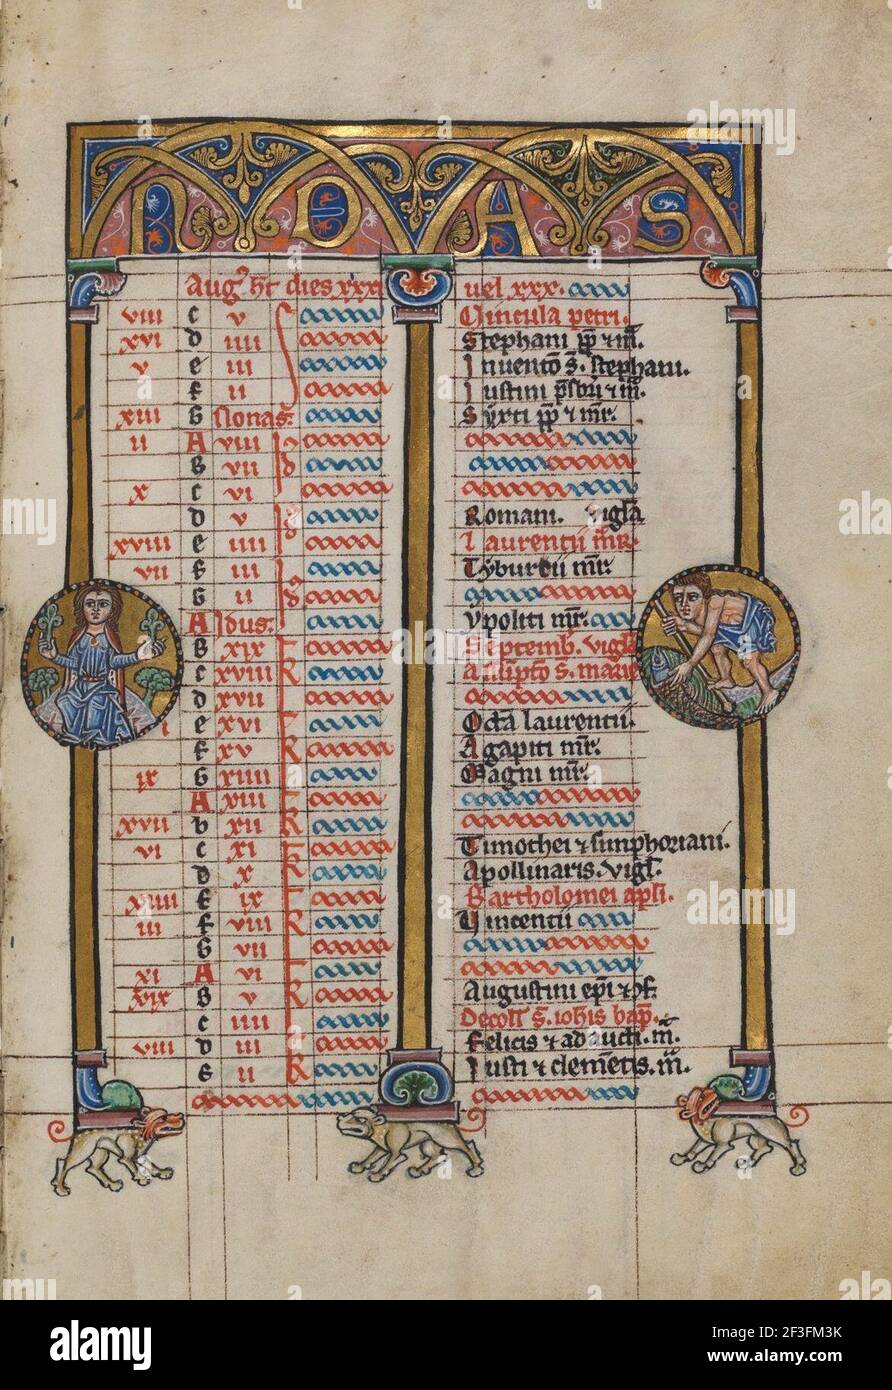 N O A S
Aug' ht dies xxxi uel xxx.
viii c v Vincula petri.
xvi d iiii Stephani pp & m̄.
v e iii Inuentō s̄. stephani.
f ii Iustini p̄sbri & m̄.
xiii G Nonas. Syxti pp & mr̄.
ii A viii id
B vii
x c vi
d v id Romani. vigl̄a
xviii e iiii Laurentii mr̄.
vii f iii id Tyburcii mr̄.
G ii
A Idus. ypoliti mr̄.
B xix K Septemb. vigl̄a
c xviii K s. marie
d xvii
e xvi K Octā laurentii.
f xv K Agapiti mr̄.
ix G xiiii Magni mr̄.
A xiii K
xvii b xii K
vi c xi K Timothei & simphoriani.
d x Apollinaris. vigl̄.
xiiii E ix K Bartholomei apli.
iii f viii K Vincentii
G vii
xi A vi K
xix B v K Augustini epi & 9f.
c iiii Decoll s̄. iohis bap.
viii d iii K Felicis & adaucti. m̄.
E ii K Iusti & clemētis. m̄.
alamy
Image ID: 2F3FM3K
www.alamy.com